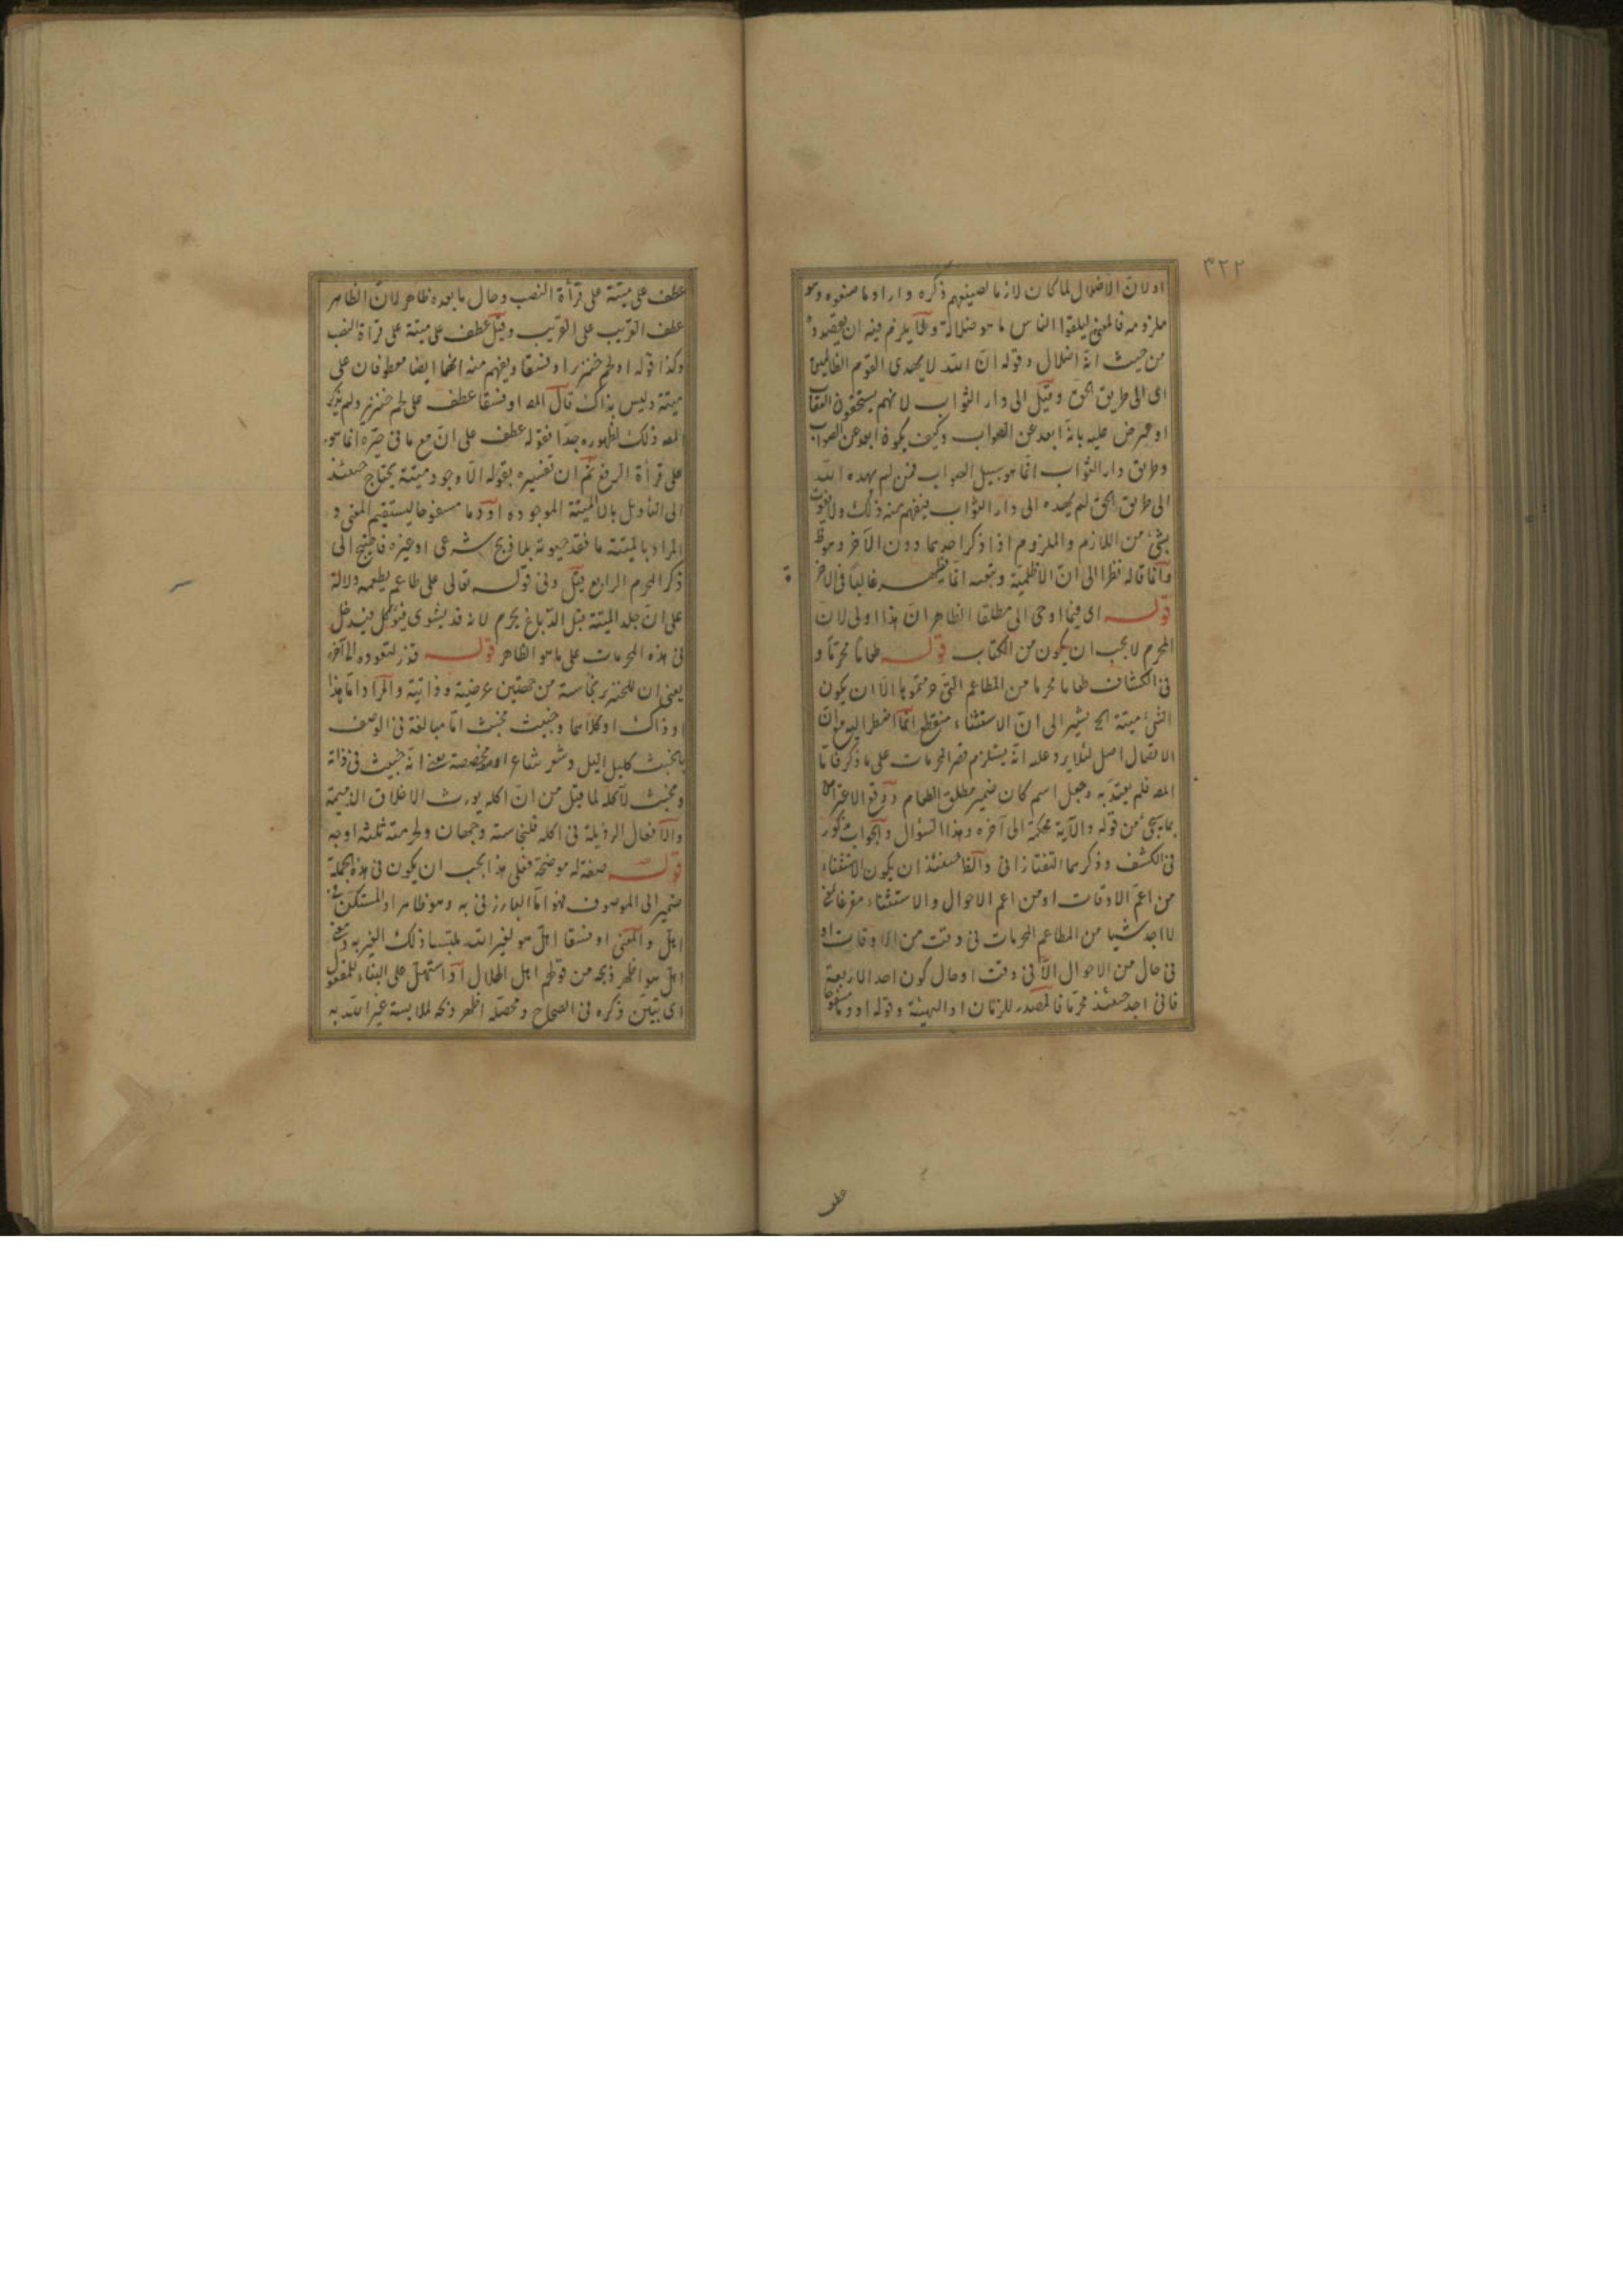 ٣٢٢
اولان الاضلال لما كان لازما لصنيعهم ذكره واراد ما صنعوه وهو
ملزومه فالمعنى ليلقوا الناس ما هو ضلالة ولما يلزم فيه ان يقصدوه
من حيث انه اضلال وقوله ان الله لا يهدى القوم الظالمين
اى الى طريق الحق وقيل الى دار الثواب لانهم يستحقون العقاب
اوعرض عليه بانه ابعد عن الصواب وكيف يكون ابعد عن الصواب
وطريق دار الثواب انما هو سبيل الصواب فمن لم يهده الله
الى طريق الحق لم يهده الى دار الثواب فيفهم منه ذلك ولا يفوت
بشئ من اللازم والملزوم اذا ذكر احدهما دون الآخر وهو ظ
وانما قاله نظرا الى ان الاظلمية وتبعه انما يظهر غالبا فى الآخر
ة
قوله اى فيما اوحى الى مطلقا الظاهر ان هذا اولى لان
المحرم لا يجب ان يكون من الكتاب قوله طعاما محرما و
فى الكشاف طعاما محرما من المطاعم التى حرمتموها الا ان يكون
الشئ ميتة الخ يشير الى ان الاستثناء منقطع انما اضطر اليه مع ان
الاتصال اصل لئلا يرد عليه انه يستلزم قصر المحرمات على ما ذكر فاما
المص فلم يعتد به وجعل اسم كان ضمير مطلق الطعام ودفع الاعتراض
بما سيجئ من قوله والآية محكمة الى آخره وهذا السؤال والجواب مذكور
فى الكشف وذكرهما التفتازانى والظ حينئذ ان يكون الاستثناء
من اعم الاوقات او من اعم الاحوال والاستثناء مفرغا
لا اجد شيئا من المطاعم المحرمات فى وقت من الاوقات او
فى حال من الاحوال الا فى وقت او حال كون احد الاربعة
فانى اجد حينئذ محرما فالمصدر للزمان او الهيئة وقوله او دما مسفوحا
عطف
عطف على ميتة على قرأة النصب وحال ما بعده ظاهر لان الظاهر
عطف القريب على القريب وقيل عطف على ميتة على قرأة النصب
وكذا قوله او لحم خنزير او فسقا ويفهم منه انهما ايضا معطوفان على
ميتة وليس بذاك قال المص او فسقا عطف على لحم خنزير ولم يذكر
المص ذلك لظهوره جدا فقوله عطف على ان مع ما فى حيزه انما هو
على قرأة الرفع ثم ان تفسيره بقوله الا وجود ميتة يحتاج حينئذ
الى التأويل بالا الميتة الموجودة او دما مسفوحا ليستقيم المعنى و
المراد بالميتة ما فقد حيوته بلا ذبح شرعى او غيره فاحتيج الى
ذكر المحرم الرابع قيل وفى قوله تعالى على طاعم يطعمه دلالة
على ان جلد الميتة قبل الدباغ يحرم لانه قد يشوى فيؤكل فيدخل
فى هذه المحرمات على ما هو الظاهر قوله قذر لتعوده الى آخره
يعنى ان للخنزير نجاسة من جهتين عرضية وذاتية والمراد اما هذا
او ذاك او كلاهما وخبيث مخبث اما مبالغة فى الوصف
بالخبث كليل اليل وشعر شاعر او مخصصة بمعنى انه خبيث فى ذاته
ومخبث لآكله لما قيل من ان اكله يورث الاخلاق الذميمة
والافعال الرذيلة فى اكله فلنجاسته وجهان ولحرمته ثلثة اوجه
قوله صفة له موضحة فعلى هذا يجب ان يكون فى هذه الجملة
ضمير الى الموصوف فهو اما البارز فى به وهو ظاهر او المستكن فى
اهل والمعنى او فسقا اهل هو لغير الله ملتبسا ذلك الغير به ومعنى
اهل هو اظهر ذبحه من قولهم اهل الهلال او استهل على البناء للمفعول
اى تبين ذكره فى الصحاح ومحصله اظهر ذبحه لملابسة غير الله به